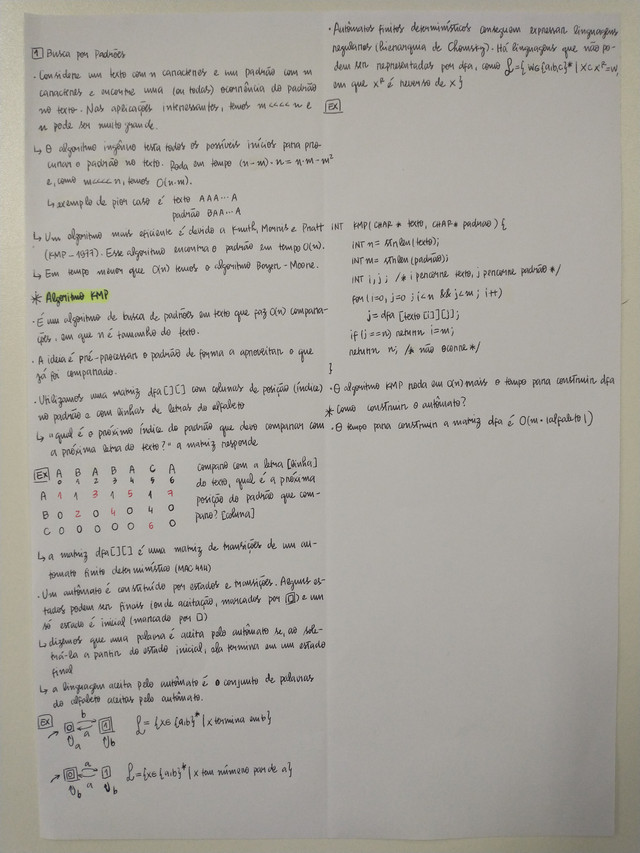 1 Busca por Padrões
· Considere um texto com n caracteres e um padrão com m
caracteres e encontre uma (ou todas) ocorrência do padrão
no texto. Nas aplicações interessantes, temos m <<<< n e
n pode ser muito grande.
↳ O algoritmo ingênuo testa todos os possíveis inícios para pro-
curar o padrão no texto. Roda em tempo (n-m)·n = n·m-m²
e, como m<<<<n, temos O(n·m).
↳ exemplo de pior caso é texto AAA...A
padrão BAA...A
↳ Um algoritmo mais eficiente é devido a Knuth, Morris e Pratt
(KMP - 1977). Esse algoritmo encontra o padrão em tempo O(n).
↳ Em tempo menor que O(n) temos o algoritmo Boyer-Moore.
* Algoritmo KMP
· É um algoritmo de busca de padrões em texto que faz O(n) compara-
ções, em que n é tamanho do texto.
· A ideia é pré-processar o padrão de forma a aproveitar o que
já foi comparado.
· Utilizamos uma matriz dfa[][] com colunas de posição (índice)
no padrão e com linhas de letras do alfabeto
↳ "qual é o próximo índice do padrão que devo comparar com
a próxima letra do texto?" a matriz responde
EX A B A B A C A
0 1 2 3 4 5 6
A 1 1 3 1 5 1 7
B 0 2 0 4 0 4 0
C 0 0 0 0 0 6 0
comparo com a letra [linha]
do texto, qual é a próxima
posição do padrão que com-
paro? [coluna]
↳ a matriz dfa[][] é uma matriz de transições de um au-
tômato finito determinístico (MAC 414)
· Um autômato é constituído por estados e transições. Alguns es-
tados podem ser finais (ou de aceitação, marcados por ▣) e um
só estado é inicial (marcado por □)
↳ dizemos que uma palavra é aceita pelo autômato se, ao sole-
trá-la a partir do estado inicial, ela termina em um estado
final
↳ a linguagem aceita pelo autômato é o conjunto de palavras
do alfabeto aceitas pelo autômato.
EX b
0 1 L = {x∈{a,b}* | x termina em b}
a a b
a
0 1 L = {x∈{a,b}* | x tem número par de a}
b a b
· Autômatos finitos determinísticos conseguem expressar linguagens
regulares (hierarquia de Chomsky). Há linguagens que não po-
dem ser representadas por dfa, como L={w∈{a,b,c}* | xcxᴿ=w,
em que xᴿ é reverso de x}
EX
INT KMP(CHAR* texto, CHAR* padrao) {
INT n = strlen(texto);
INT m = strlen(padrão);
INT i, j; /* i percorre texto, j percorre padrão */
for (i=0, j=0 ; i<n && j<m ; i++)
j = dfa [texto[i]][j];
if (j==n) return i-m;
return n; /* não ocorre */
}
· O algoritmo KMP roda em O(n) mais o tempo para construir dfa
* Como construir o autômato?
· O tempo para construir a matriz dfa é O(m·|alfabeto|)